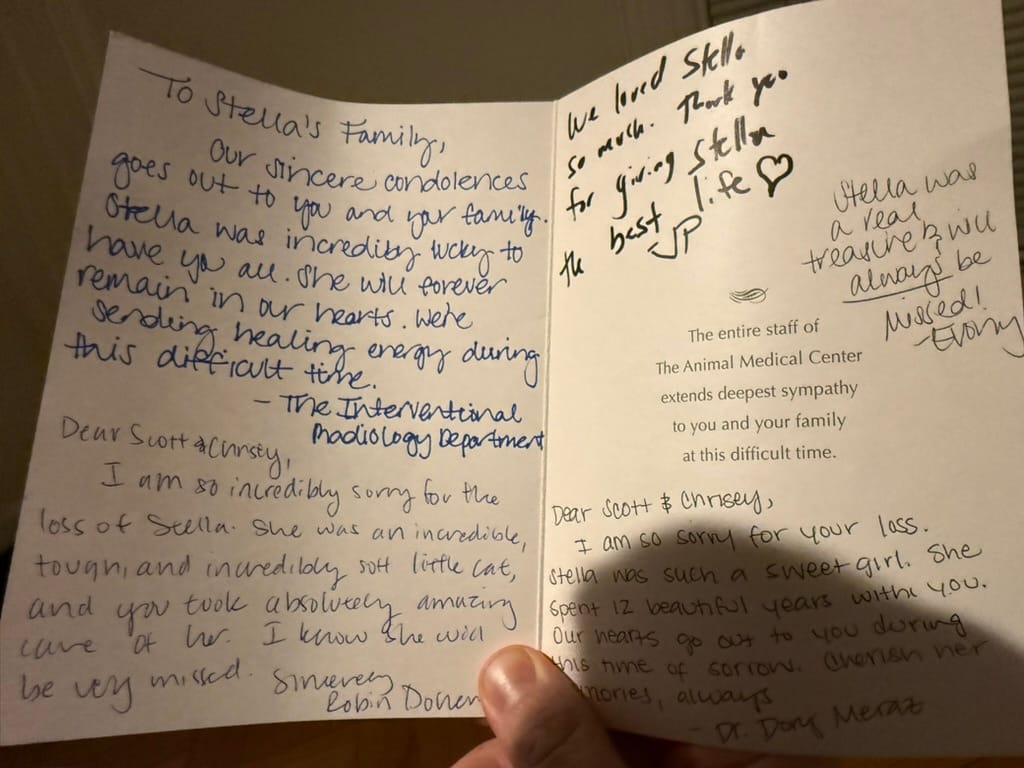 To Stella's Family,
Our sincere condolences
goes out to you and your family.
Stella was incredibly lucky to
have you all. She will forever
remain in our hearts. We're
sending healing energy during
this difficult time.
- The Interventional
Radiology Department
Dear Scott & Chrisey,
I am so incredibly sorry for the
loss of Stella. She was an incredible,
tough, and incredibly soft little cat,
and you took absolutely amazing
care of her. I know she will
be very missed. Sincerely
Robin
We loved Stella
so much. Thank you
for giving Stella
the best life ♡
JP
Stella was
a real
treasure & will
always be
missed!
- Evony
The entire staff of
The Animal Medical Center
extends deepest sympathy
to you and your family
at this difficult time.
Dear Scott & Chrisey,
I am so sorry for your loss.
Stella was such a sweet girl. She
spent 12 beautiful years with you.
Our hearts go out to you during
this time of sorrow. Cherish her
always
- Dr. Dory Meraz